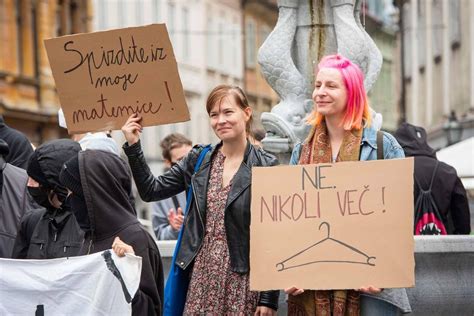 Spizdite iz
moje
maternice!
NE.
NIKOLI VEČ!